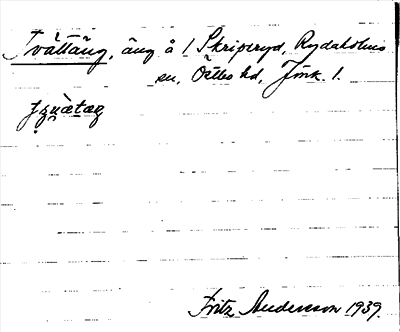 Tvättäng, äng å 1 Skriperyd, Rydaholms
sn, Östbo hd, Jönk. l.
Fritz Andersson 1939.